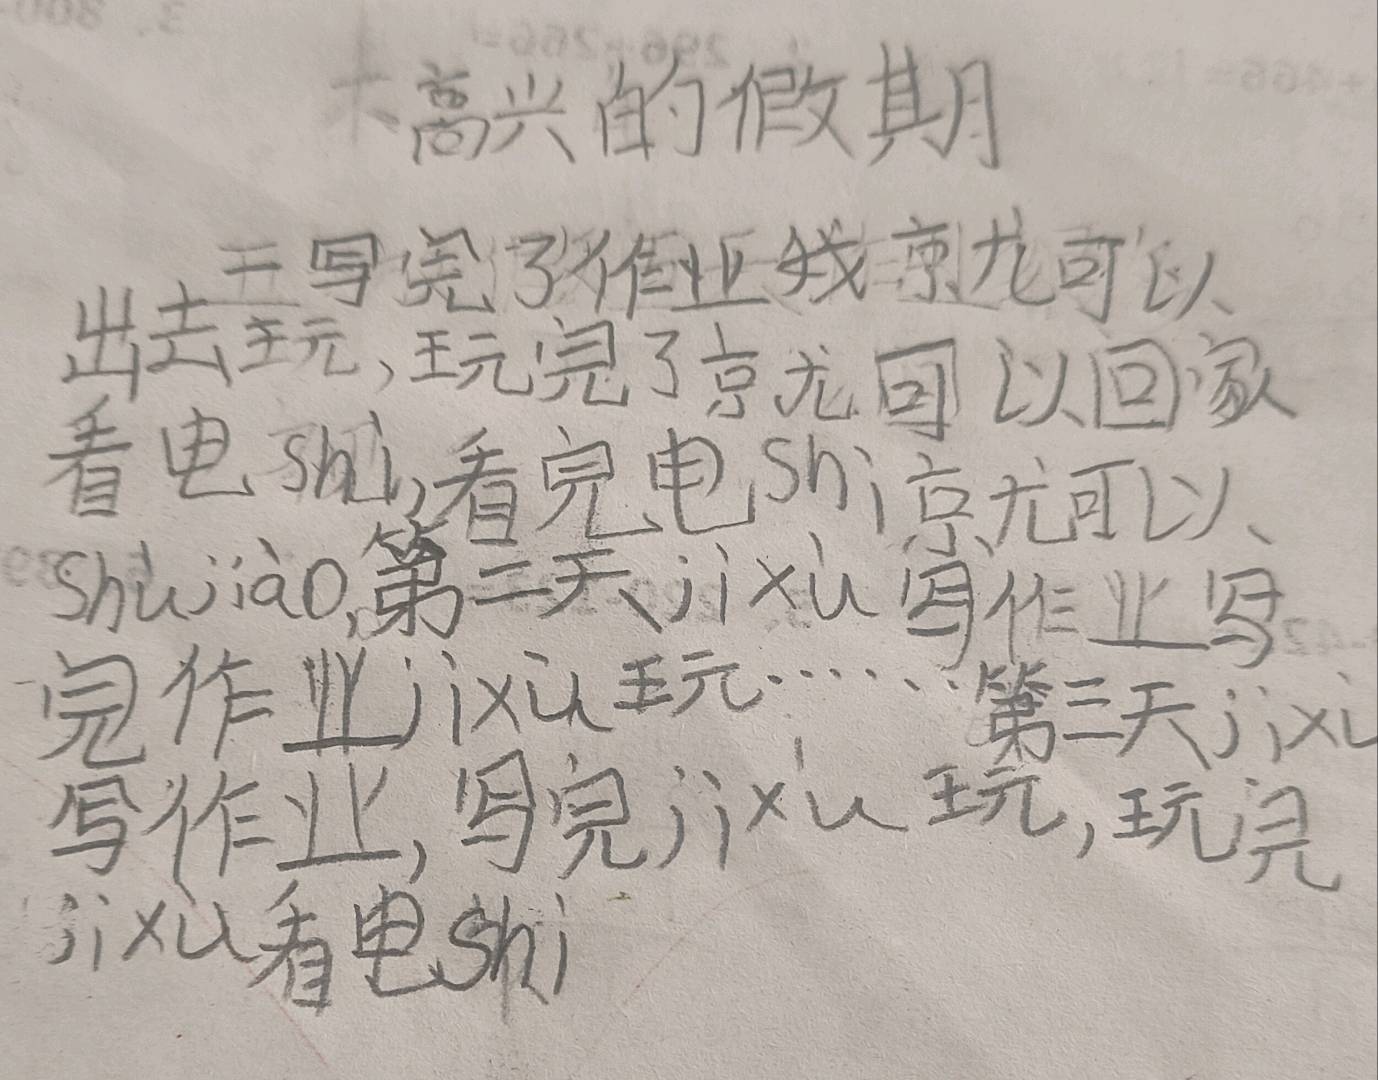 高兴的假期
写完了作业我就可以
出去玩，玩完了就可以回家
看电shì，看完电shì就可以
shùjiào，第二天jìxù写作业写
完作业jìxù玩……第三天jìxù
写作业，写完jìxù玩，玩完
jìxù看电shì